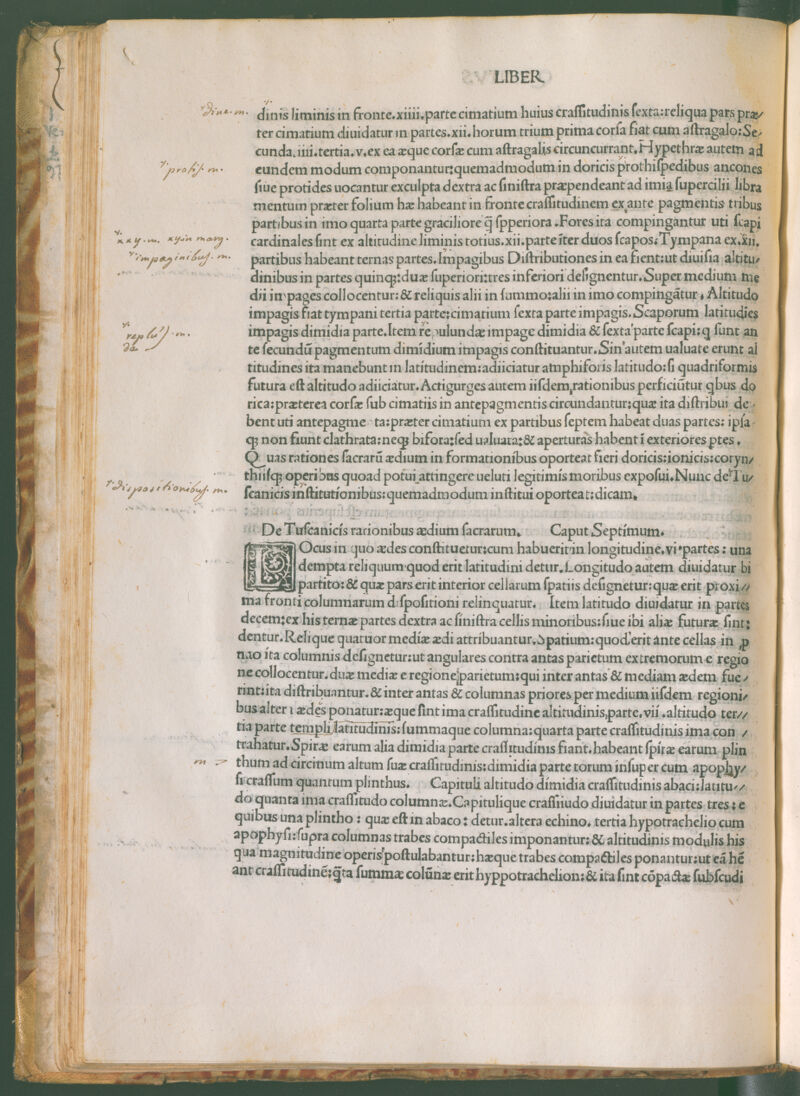 LIBER
dine.m.
dinis liminis in fronte.xiiii.parte cimatium huius craſſitudinis ſexta:reliqua pars præ/
ter cimatium diuidatur in partes.xii.horum trium prima corſa fiat cum aſtragalo:Se/
cunda.iiii.tertia.v.ex ea æque corſæ cum aſtragalis circuncurrant.Hypethræ autem ad
eundem modum componantur:quemadmodum in doricis prothiſpedibus ancones
ſiue protides uocantur exculpta dextra ac ſiniſtra præpendeant ad imia ſupercilii libra
mentum præter folium hæ habeant in fronte craſſitudinem ex ante pagmentis tribus
partibus in imo quarta parte graciliore q̃ ſpperiora.Fores ita compingantur uti ſcapi
cardinales ſint ex altitudine liminis totius.xii.parte īter duos ſcapos.Tympana ex.xii.
impaginibuſ.m.
partibus habeant ternas partes.Impagibus Diſtributiones in ea fient:ut diuiſia altitu/
dinibus in partes quinq;:duæ ſuperiori:tres inferiori deſignentur.Super medium me
dii in pages collocentur:& reliquis alii in ſummo:alii in imo compingãtur, Altitudo
impagis fiat tympani tertia parte:cimatium ſexta parte impagis.Scaporum latitudies
impagis dimidia parte.Item re pulundæ impage dimidia & ſexta parte ſcapi:q ſunt an
te ſecundũ pagmentum dimidium impagis conſtituantur.Sin autem ualuate erunt al
titudines ita manebunt in latitudinem:adiiciatur amphiforis latitudo:ſi quadriformis
futura eſt altitudo adiiciatur.Actigurges autem iiſdem,rationibus perficiũtur qbus do
rica:præterea corſæ ſub cimatiis in antepagmentis circundantur:quæ ita diſtribui de-
bent uti antepagme ta:præter cimatium ex partibus ſeptem habeat duas partes: ipſa
q; non fiunt clathrata:neq; bifora:ſed ualuata:& aperturas habent ī exteriores ptes.
Q uas rationes ſacrarũ ædium in formationibus oporteat fieri doricis:ionicis:coryn/
thiiſq; operibus quoad potui attingere ueluti legitimis moribus expoſui.Nunc de Tu/
diſpoſitionibuſ.m.
ſcanicis inſtitutionibus:quemadmodum inſtitui oporteat:dicam.
De Tuſcanicis rationibus ædium ſacrarum. Caput Septimum.
LOcus in quo ædes conſtituetur:cum habuerit in longitudine.vi.partes: una
dempta reliquum quod erit latitudini detur.Longitudo autem diuidatur bi
partito:& quæ pars erit interior cellarum ſpatiis deſignetur:quæ erit proxi//
ma fronti columnarum diſpoſitioni relinquatur. Item latitudo diuidatur in partes
decem:ex his ternæ partes dextra ac ſiniſtra cellis minoribus:ſiue ibi aliæ futuræ ſint:
dentur.Relique quatuor mediæ ædi attribuantur.Spatium:quod erit ante cellas in ꝓ
nao ita columnis deſignetur:ut angulares contra antas parietum extremorum e regio
ne collocentur.duæ mediæ e regione parietum:qui inter antas & mediam ædem fue/
rint:ita diſtribuantur.& inter antas & columnas priores per medium iiſdem regioni/
bus alter ı ædes ponatur:æque ſint ima craſſitudine altitudinis,parte.vii.altitudo ter//
tia parte templi latitudinis:ſummaque columna:quarta parte craſſitudinis ima con /
trahatur.Spiræ earum alia dimidia parte craſſitudinis fiant.habeant ſpiræ earum plin
m
thum ad circinum altum ſuæ craſſitudinis:dimidia parte torum inſuper cum apophy/
ſi craſſum quantum plinthus. Capituli altitudo dimidia craſſitudinis abaci:latitu//
do quanta ima craſſitudo columnæ.Capitulique craſſitiudo diuidatur in partes tres: e
quibus una plintho: quæ eſt in abaco: detur.altera echino. tertia hypotrachelio cum
apophyſi:ſupra columnas trabes compactiles imponantur:& altitudinis modulis his
qua magnitudine operis poſtulabantur:hæque trabes compactiles ponantur:ut eã hẽ
ant craſſitudinẽ:q̃ta ſummæ colũnæ erit hyppotrachelion:& ita ſint cõpactæ ſubſcudi